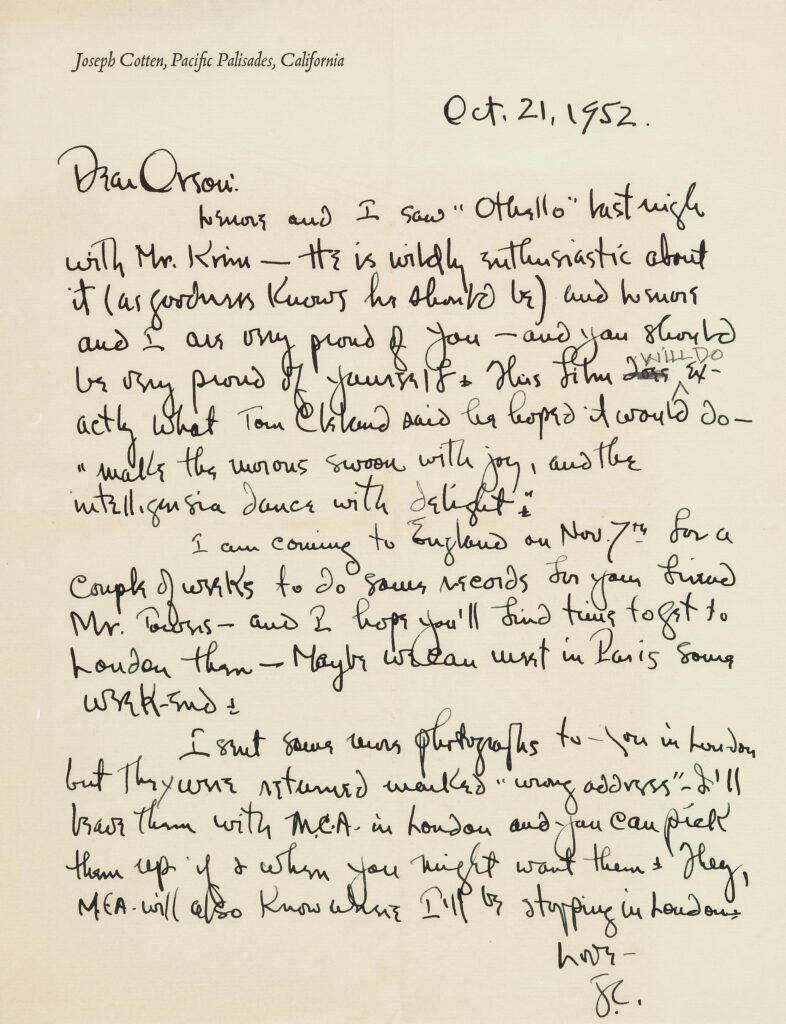 Joseph Cotten, Pacific Palisades, California
Oct. 21, 1952.
Dear Orson:
Lenore and I saw "Othello" last nigh
with Mr. Krim — He is wildly enthusiastic about
it (as goodness knows he should be) and Lenore
and I are very proud of you — and you should
be very proud of yourself. This film WILL DO ex-
actly what Tom Cleland said he hoped it would do —
"make the morons swoon with joy, and the
intelligensia dance with delight."
I am coming to England on Nov. 7th for a
couple of weeks to do some records for your friend
Mr. Towers — and I hope you'll find time to get to
London then — Maybe we can meet in Paris some
week-end.
I sent some more photographs to you in London
but they were returned marked "wrong address" — I'll
leave them with M.C.A. in London and you can pick
them up if & when you might want them. They,
M.C.A. will also know where I'll be stopping in London.
Love —
J.C.